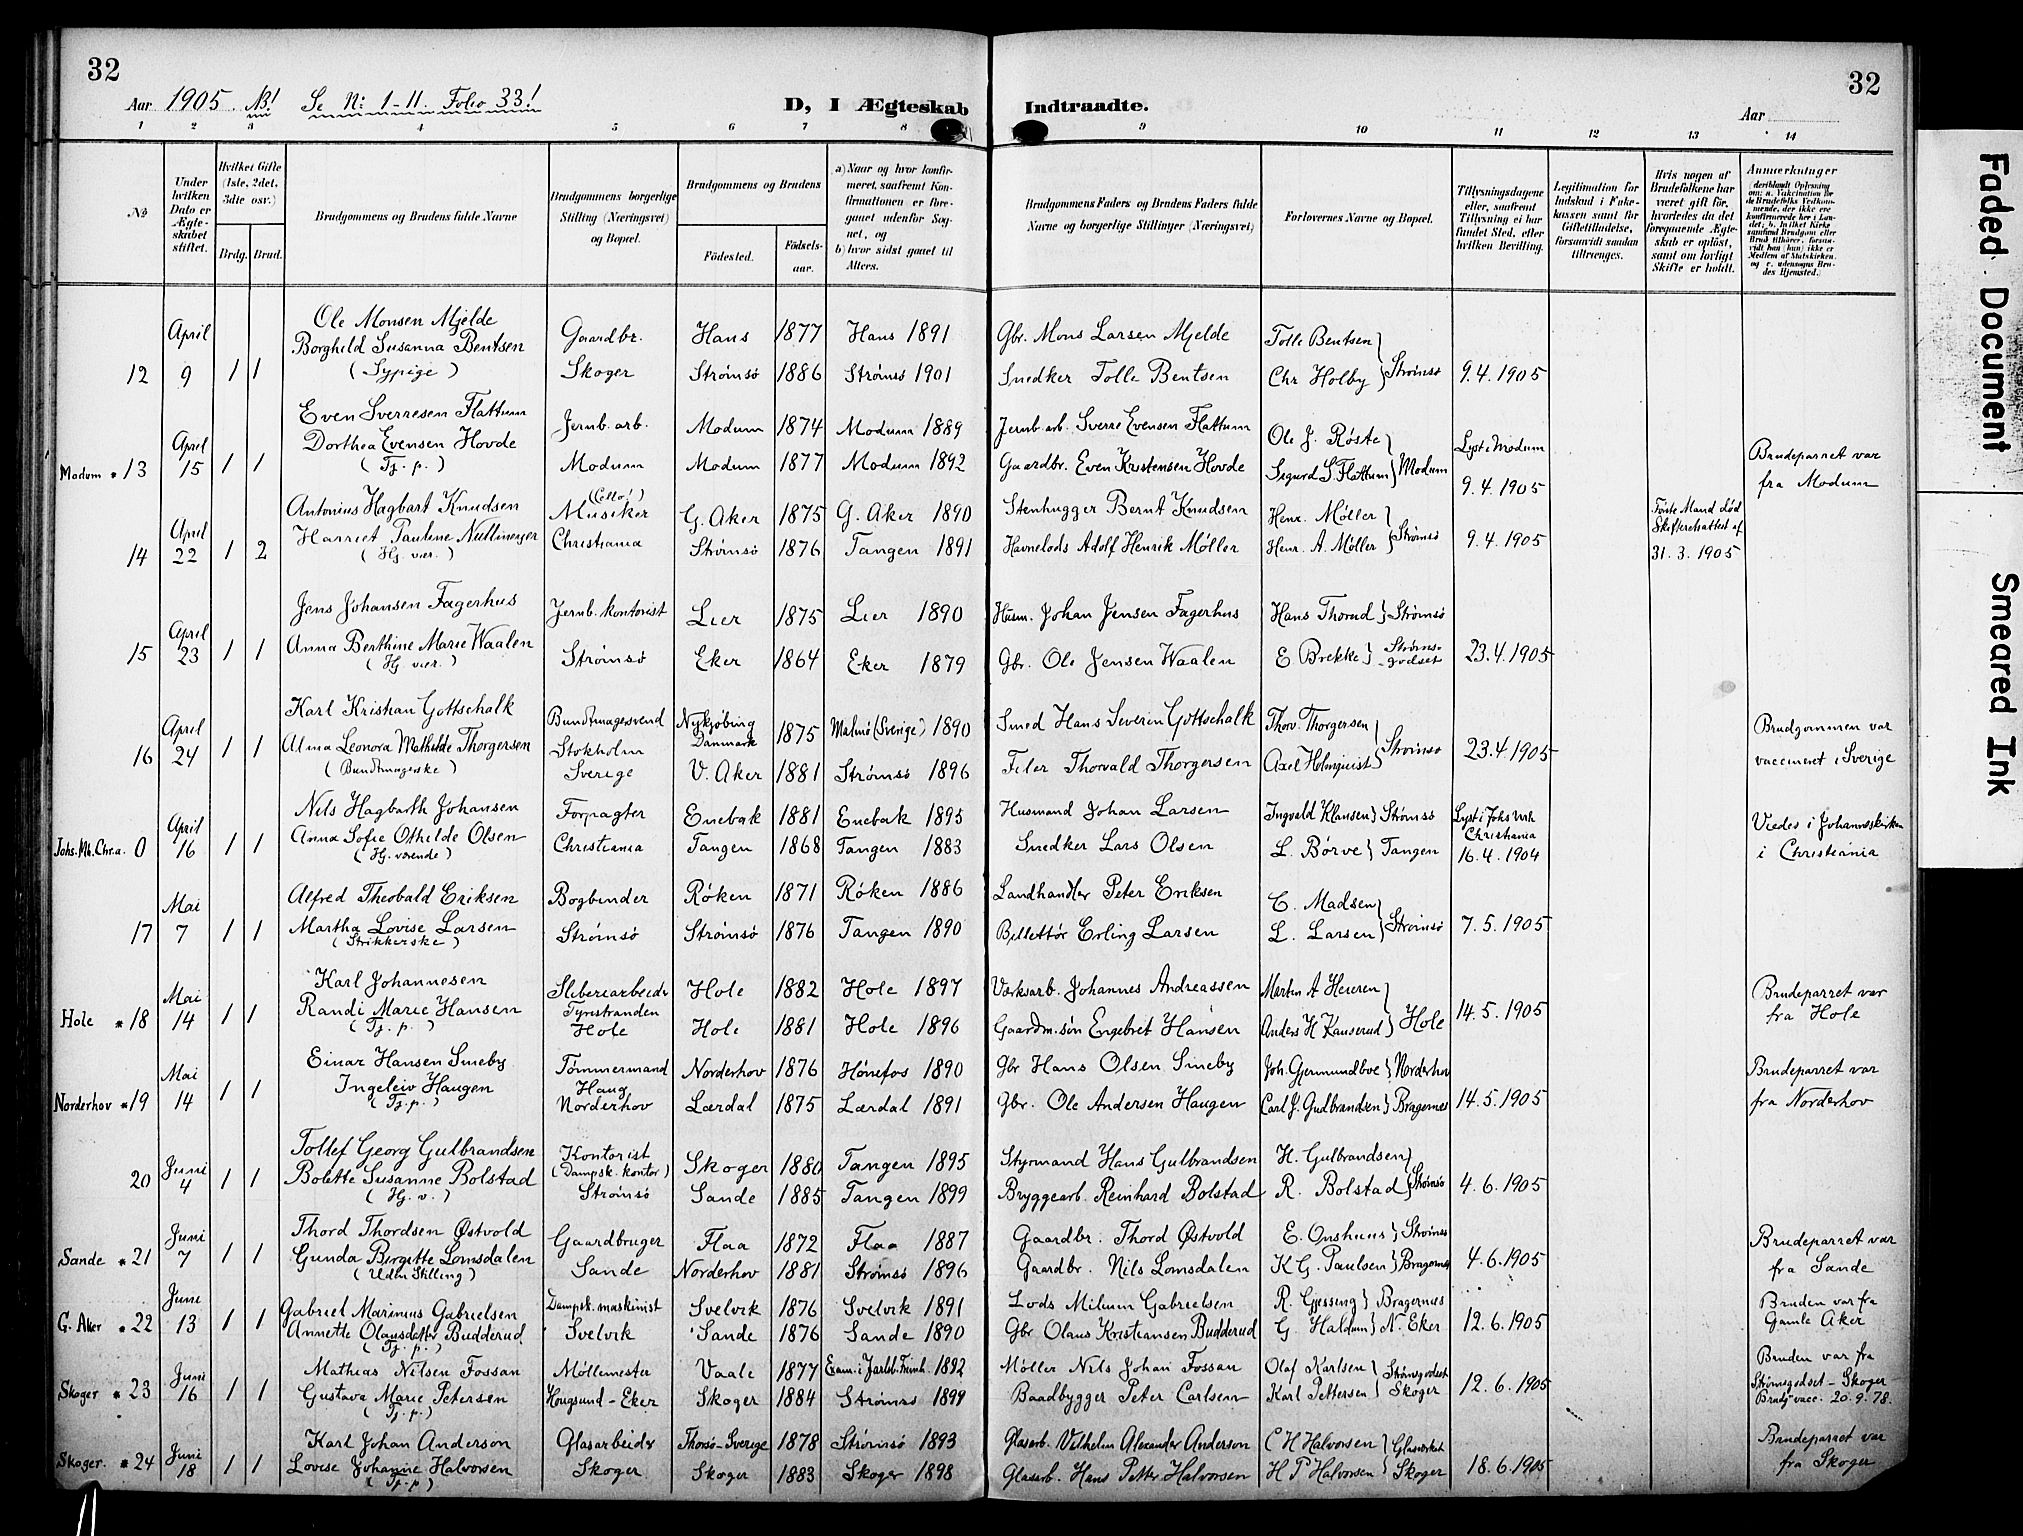 32
32
Aar 1905. NB! Se No: 1-11. Folio 33!
D, I Ægteskab Indtraadte.
Aar
1 2 3 4 5 6 7 8 9 10 11 12 13 14
No
Under hvilken Dato er Ægteskabet stiftet.
Hvilket Gifte (1ste, 2det, 3die osv.)
Brdg. Brud.
Brudgommens og Brudens fulde Navne
Brudgommens borgerlige Stilling (Næringsvei) og Bopæl.
Brudgommens og Brudens
Födested. Födselsaar.
a) Naar og hvor konfirmeret, saafremt Konfirmationen er foregaaet udenfor Sognet, og
b) hvor sidst gaaet til Alters.
Brudgommens Faders og Brudens Faders fulde Navne og borgerlige Stillinger (Næringsvei)
Forlovernes Navne og Bopæl.
Tillysningsdagene eller, saafremt Tillysning ei har fundet Sted, efter hvilken Bevilling.
Legitimation for Indskud i Enkekassen samt for Giftetilladelse, forsaavidt saadan tiltrænges.
Hvis nogen af Brudefolkene har været gift før, hvorledes da det foregaaende Ægteskab er opløst, samt om lovligt Skifte er holdt.
Anmerkninger
12 April 9 1 1 Ole Monsen Mjelde Gaardbr. Hans 1877 Hans 1891 Gbr. Mons Larsen Mjelde Tolle Bentsen
Borghild Susanna Bentsen (Sypige) Skoger Strømsö 1886 Strømsö 1901 Snedker Tolle Bentsen Chr Holby } Strømsö 9.4.1905
Modum * 13 April 15 1 1 Even Sverresen Flattum Jernb. arb. Modum 1874 Modum 1889 Jernb. arb. Sverre Evensen Flattum Ole J. Røste Lyst i Modum
Dorthea Evensen Hovde (Tj. p.) Modum Modum 1877 Modum 1892 Gaardbr. Even Kristensen Hovde Sigurd S. Flattum } Modum 9.4.1905 Brudeparret var fra Modum
14 April 22 1 2 Antonius Hagbart Knudsen (Cello!) Musiker G. Aker 1875 G. Aker 1890 Stenhugger Bernt Knudsen Henr. Møller Første Mand død
Harriet Pauline Nullmeyer (Hj. vær.) Christiania Strømsö 1876 Tangen 1891 Havnelods Adolf Henrik Møller Henr. A. Møller } Strømsö 9.4.1905 Skifterettsattest af 31.3.1905
15 April 23 1 1 Jens Johansen Fagerhus Jernb. kontorist Lier 1875 Lier 1890 Husm. Johan Jensen Fagerhus Hans Thorud } Strømsö
Anna Berthine Marie Waalen (Hj. vær.) Strømsö Eker 1864 Eker 1879 Gbr. Ole Jensen Waalen E. Brekke } Strømsgodset 23.4.1905
16 April 24 1 1 Karl Kristian Gottschalk Bundtmagersvend Nykjøbing Danmark 1875 Malmö (Sverige) 1890 Smed Hans Severin Gottschalk Thorv. Thorgersen
Alma Leonora Mathilde Thorgersen (Bundtmagerske) Stokholm Sverige V. Aker 1881 Strømsö 1896 Filer Thorvald Thorgersen Axel Holmquist } Strømsö 23.4.1905 Brudgommen var vaccineret i Sverige
Johs. Mk. Chr.a. 0 April 16 1 1 Nils Hagbarth Johansen Forpagter Enebak 1881 Enebak 1895 Husmand Johan Larsen Ingvald Klausen } Strømsö Lyst i Johs Mk Christiania
Anna Sofie Othilde Olsen (Hj. værende) Christiania Tangen 1868 Tangen 1883 Snedker Lars Olsen L. Børve } Tangen 16.4.1904 Viedes i Johanneskirken i Christiania
17 Mai 7 1 1 Alfred Theobald Eriksen Bogbinder Røken 1871 Røken 1886 Landhandler Peter Eriksen C. Madsen
Martha Lovise Larsen (Strikkerske) Strømsö Strømsö 1876 Tangen 1890 Billettør Erling Larsen L. Larsen } Strømsö 7.5.1905
Hole * 18 Mai 14 1 1 Karl Johannesen Sliberiarbeider Tyristranden Hole 1882 Hole 1897 Værksarb. Johannes Andreassen Martin A
Randi Marie Hansen (Tj. p.) Hole Hole 1881 Hole 1896 Gaardm.søn Engebret Hansen Anders H } Hole 14.5.1905 Brudeparret var fra Hole
Norderhov * 19 Mai 14 1 1 Einar Hansen Smeby Tømmermand Norderhov 1876 Hönefos 1890 Gbr Hans Olsen Smeby Joh. Gjermundboe } Norderhov
Ingeleiv Haugen (Tj. p.) Haug Norderhov Lærdal 1875 Lærdal 1891 Gbr. Ole Andersen Haugen Carl J. Gudbrandsen } Bragernes 14.5.1905 Brudeparret var fra Norderhov
20 Juni 4 1 1 Tollef Georg Gulbrandsen Kontorist (Dampsk. kontor) Skoger 1880 Tangen 1895 Styrmand Hans Gulbrandsen H. Gulbrandsen
Bolette Susanne Bolstad (Hj. v.) Strømsö Sande 1885 Tangen 1899 Bryggearb. Reinhard Bolstad R. Bolstad } Strømsö 4.6.1905
Sande * 21 Juni 7 1 1 Thord Thordsen Østvold Gaardbruger Flaa 1872 Flaa 1887 Gaardbr. Thord Østvold E. Onshuus } Strømsö
Gunda Birgitte Lomsdalen (Uden Stilling) Sande Norderhov 1881 Strømsö 1896 Gaardbr. Nils Lomsdalen K G. Paulsen } Bragernes 4.6.1905 Brudeparret var fra Sande
G. Aker * 22 Juni 13 1 1 Gabriel Marinius Gabrielsen Dampsk. maskinist Svelvik 1876 Svelvik 1891 Lods Gabrielsen R. Gjessing } Bragernes
Annette Olausdatter Budderud (Tj. p.) Svelvik Sande 1876 Sande 1890 Gbr. Olaus Kristiansen Budderud G. Haldum } N. Eker 12.6.1905 Bruden var fra Gamle Aker
Skoger * 23 Juni 16 1 1 Mathias Nilsen Fossan Møllemester Vaale 1877 1892 Møller Nils Johan Fossan Olaf Karlsen } Strømsgodset
Gustava Marie Petersen (Tj. p.) Hougsund - Eker Skoger 1884 Strømsö 1899 Baadbygger Peter Carlsen Karl Pettersen } Skoger 12.6.1905 Bruden var fra Strømsgodset - Skoger Brudg vacc. 20.9.78.
Skoger. * 24 Juni 18 1 1 Karl Johan Anderson Glasarbeider Thorsö - Sverige 1878 Strømsö 1893 Glasarb. Vilhelm Alexander Anderson C H Halvorsen } Glasverket
Lovise Johanne Halvorsen (Tj. p) Skoger Skoger 1883 Skoger 1898 Glasarb. Hans Petter Halvorsen H P Halvorsen } Skoger 18.6.1905 Brudeparret var fra Skoger
Faded Document
Smeared Ink